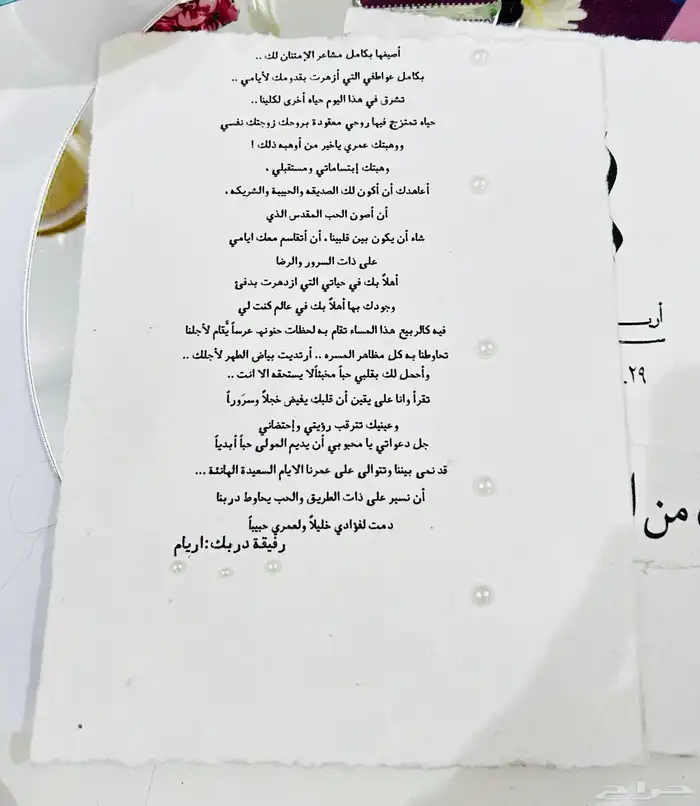 أصيغها بكامل مشاعر الإمتنان لك ..
بكامل عواطفي التي أزهرت بقدومك لأيامي ..
تشرق في هذا اليوم حياه أخرى لكلينا ..
حياه تمتزج فيها روحي معقودة بروحك زوجتك نفسي
ووهبتك عمري ياخير من أوهبه ذلك !
وهبتك إبتساماتي ومستقبلي .
أعاهدك أن أكون لك الصديقه والحبيبة والشريكه .
أن أصون الحب المقدس الذي
شاء أن يكون بين قلبينا . أن أتقاسم معك ايامي
على ذات السرور والرضا
أهلاً بك في حياتي التي ازدهرت بدفئ
وجودك بها أهلاً بك في عالم كنت لي
فيه كالربيع هذا المساء تقام به لحظات حنونه عرساً يُقام لأجلنا
تحاوطنا به كل مظاهر المسره .. أرتديت بياض الطهر لأجلك ..
وأحمل لك بقلبي حباً مخبئاًلا يستحقه الا انت ..
تقرأ وانا على يقين أن قلبك يفيض خجلاً وسروراً
وعينيك تترقب رؤيتي وإحتضاني
جل دعواتي يا محبوبي أن يديم المولى حباً أبدياً
قد نمى بيننا وتتوالى على عمرنا الايام السعيدة الهانئة ...
أن نسير على ذات الطريق والحب يحاوط دربنا
دمت لفؤادي خليلاً ولعمري حبيباً
رفيقة دربك:اريام
أر
.٢٩
من
حراج